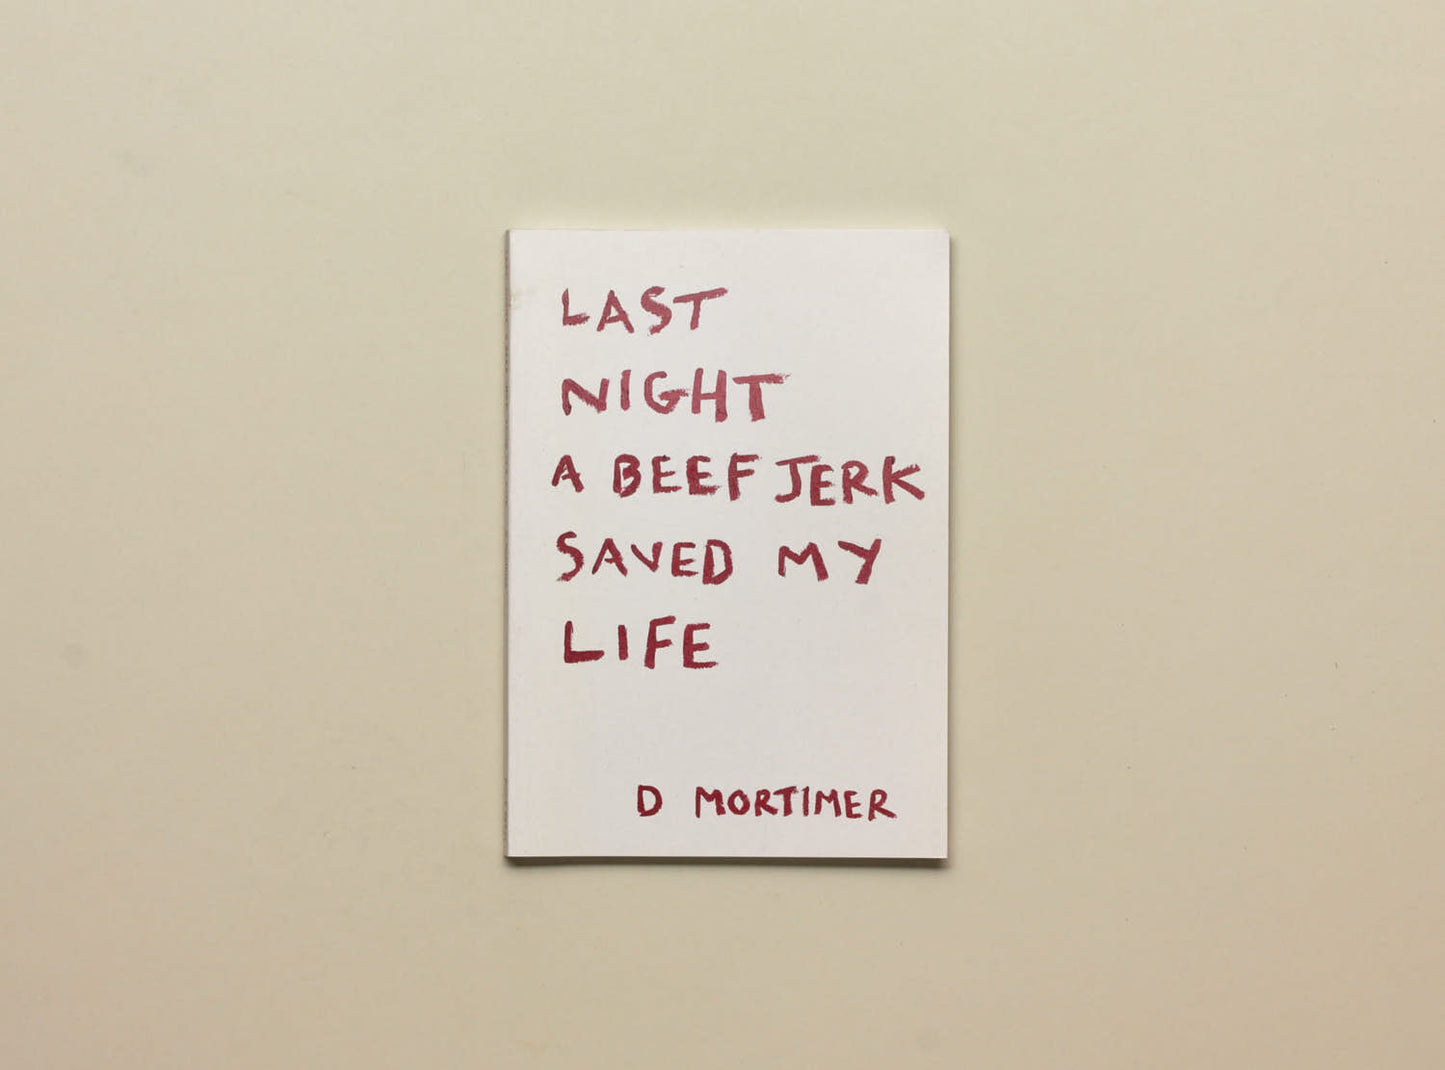 LAST
NIGHT
A BEEF JERK
SAVED MY
LIFE
D MORTIMER